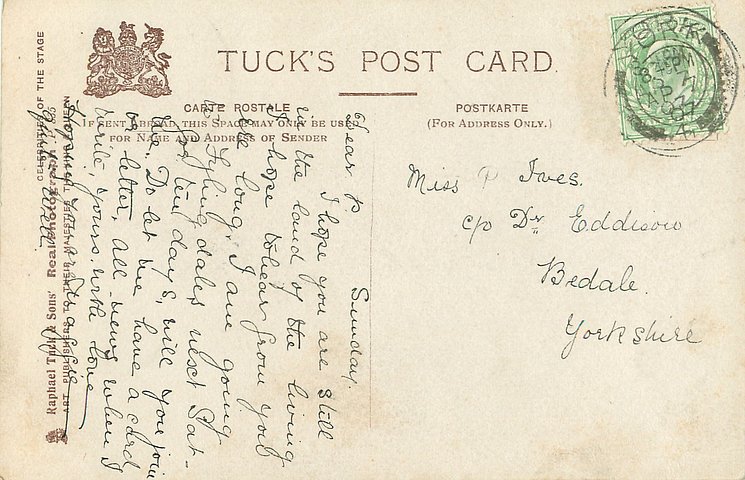 TUCK'S POST CARD.
CARTE POSTALE
IF SENT ABROAD, THIS SPACE MAY ONLY BE USED
FOR NAME AND ADDRESS OF SENDER
POSTKARTE
(FOR ADDRESS ONLY.)
Miss P Ives.
c/o Dr Eddison
Bedale.
Yorkshire
Sunday.
Dear P.
I hope you are still
in the land of the living
I hope to hear from you
ere long. I am going
to Fyling dales next Sat-
for ten days, will you join
me. Do let me have a card
or letter, all news when I
write, yours with love
Hoping you are
CELEBRITIES OF THE STAGE
Raphael Tuck & Sons' Real Photograph
ART PUBLISHERS TO THEIR MAJESTIES THE KING & QUEEN